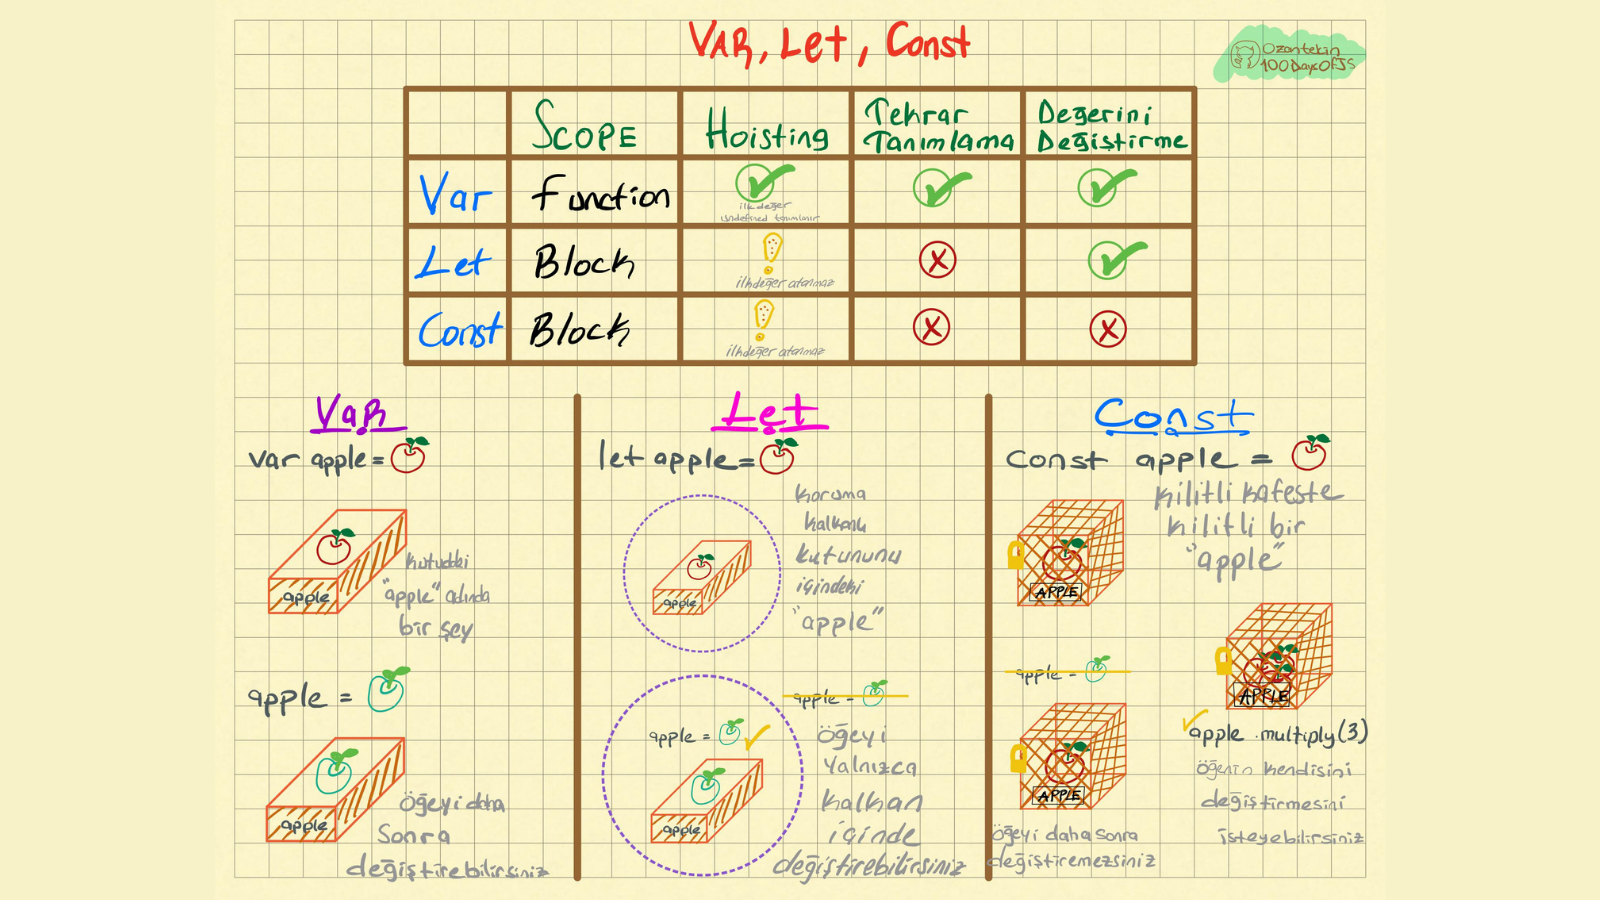 VAR, Let, Const
Ozantekin
100DaysOfJS
SCOPE
Hoisting
Tekrar
Tanımlama
Değerini
Değiştirme
Var
Function
ilk değer
undefined tanımlanır
Let
Block
ilk değer atanmaz
Const
Block
ilk değer atanmaz
Var
var apple =
apple
kutudaki
"apple" adında
bir şey
apple =
apple
öğeyi daha
sonra
değiştirebilirsiniz
Let
let apple =
apple
koruma
kalkanlı
kutununu
içindeki
"apple"
apple =
apple =
apple
öğeyi
yalnızca
kalkan
içinde
değiştirebilirsiniz
Const
const apple =
kilitli kafeste
kilitli bir
"apple"
APPLE
apple =
APPLE
öğeyi daha sonra
değiştiremezsiniz
APPLE
apple.multiply(3)
öğenin kendisini
değiştirmesini
isteyebilirsiniz